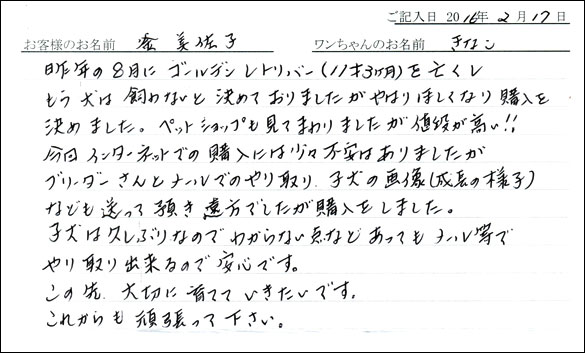 ご記入日 2016年 2月 17日
お客様のお名前 美佐子 ワンちゃんのお名前 きなこ
昨年の8月に ゴールデンレトリバー(11才3ヶ月)を亡くし
もう犬は飼わないと決めておりましたがやはりほしくなり購入を
決めました。ペットショップも見てまわりましたが値段が高い!!
今回インターネットでの購入には少々不安はありましたが
ブリーダーさんとメールでのやり取り、子犬の画像(成長の様子)
なども送って頂き遠方でしたが購入をしました。
子犬は久しぶりなのでわからない点などあってもメール等で
やり取り出来るので安心です。
この先、大切に育てていきたいです。
これからも頑張って下さい。